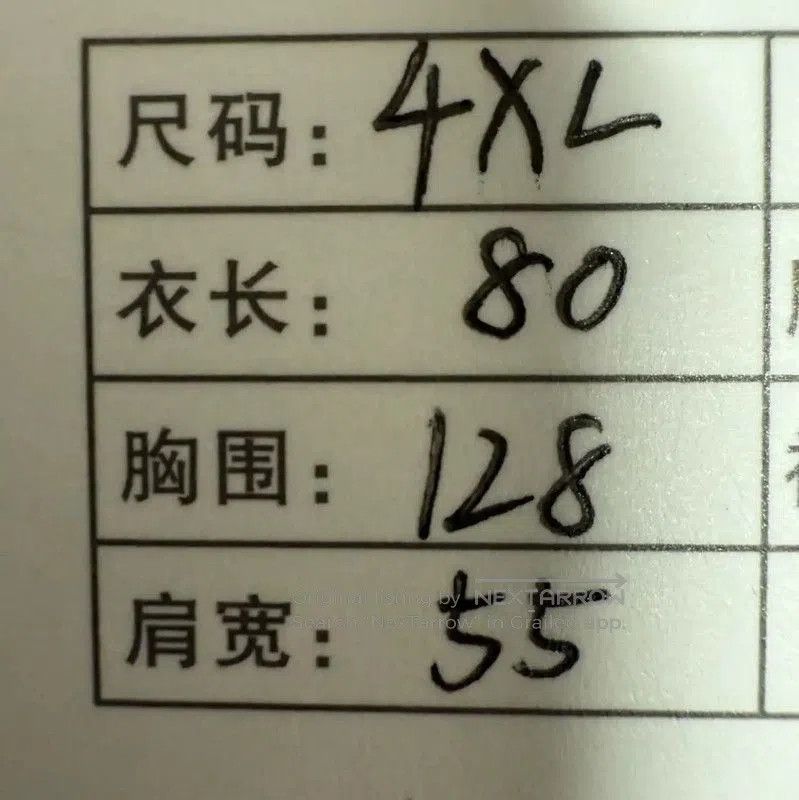 尺码: 4XL
衣长: 80
胸围: 128
肩宽: 55
Original listing by NEXTARROW
Search "NexTarrow" in Grailed app.